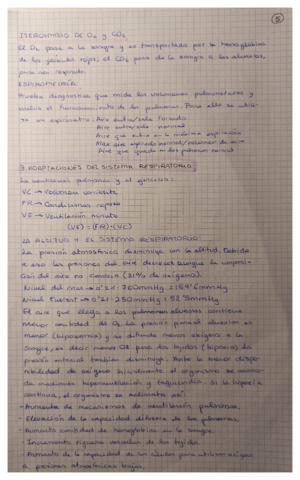 5
INTERCAMBIO DE O2 y CO2
El O2 pasa a la sangre y es transportado por la hemoglobina
de los glóbulos rojos; el CO2 pasa de la sangre a los alveolos,
para ser expirado.
ESPIROMETRÍA:
Prueba diagnostica que mide los volúmenes pulmonares y
evalúa el funcionamiento de los pulmones. Para ello se utiliza
un espirómetro. Aire entra/sale forzado
Aire entra/sale normal
Aire que entra en la máxima
Aire que queda en los pulmones normal
3. ADAPTACIONES DEL SISTEMA RESPIRATORIO
La ventilación pulmonar y el ejercicio:
VC → Volumen corriente
FR → Condiciones reposo
VE → Ventilación minuto
(VE) = (FR)·(VC)
LA ALTITUD Y EL SISTEMA RESPIRATORIO
La presión atmosférica disminuye con la altitud. Debido
a eso las presiones del aire descienden aunque la
del aire no cambia (21% de oxígeno).
Nivel del mar → 0'21·760mmHg = 159'6mmHg
Nivel Everest → 0'21·250mmHg = 52'5mmHg
El aire que llega a los pulmones alveolos contiene
menor cantidad de O2. La presión parcial alveolar es
menor (hipoxemia) y se difunde menos oxígeno a la
sangre, es decir menos O2 para los tejidos (hipoxia). La
presión arterial también disminuye. Ante la menor dispo-
nibilidad de oxígeno inicialmente el organismo se acomo-
da mediante hiperventilación y taquicardia. Si la hipoxia
continua, el organismo se aclimata así:
- Aumento de mecanismos de ventilación pulmonar.
- Elevación de la capacidad difusora de los pulmones.
- Aumento cantidad de hemoglobina en la sangre.
- Incremento riqueza vascular de los tejidos.
- Aumento de la capacidad de las células para utilizar oxígeno
a presiones atmosféricas bajas.